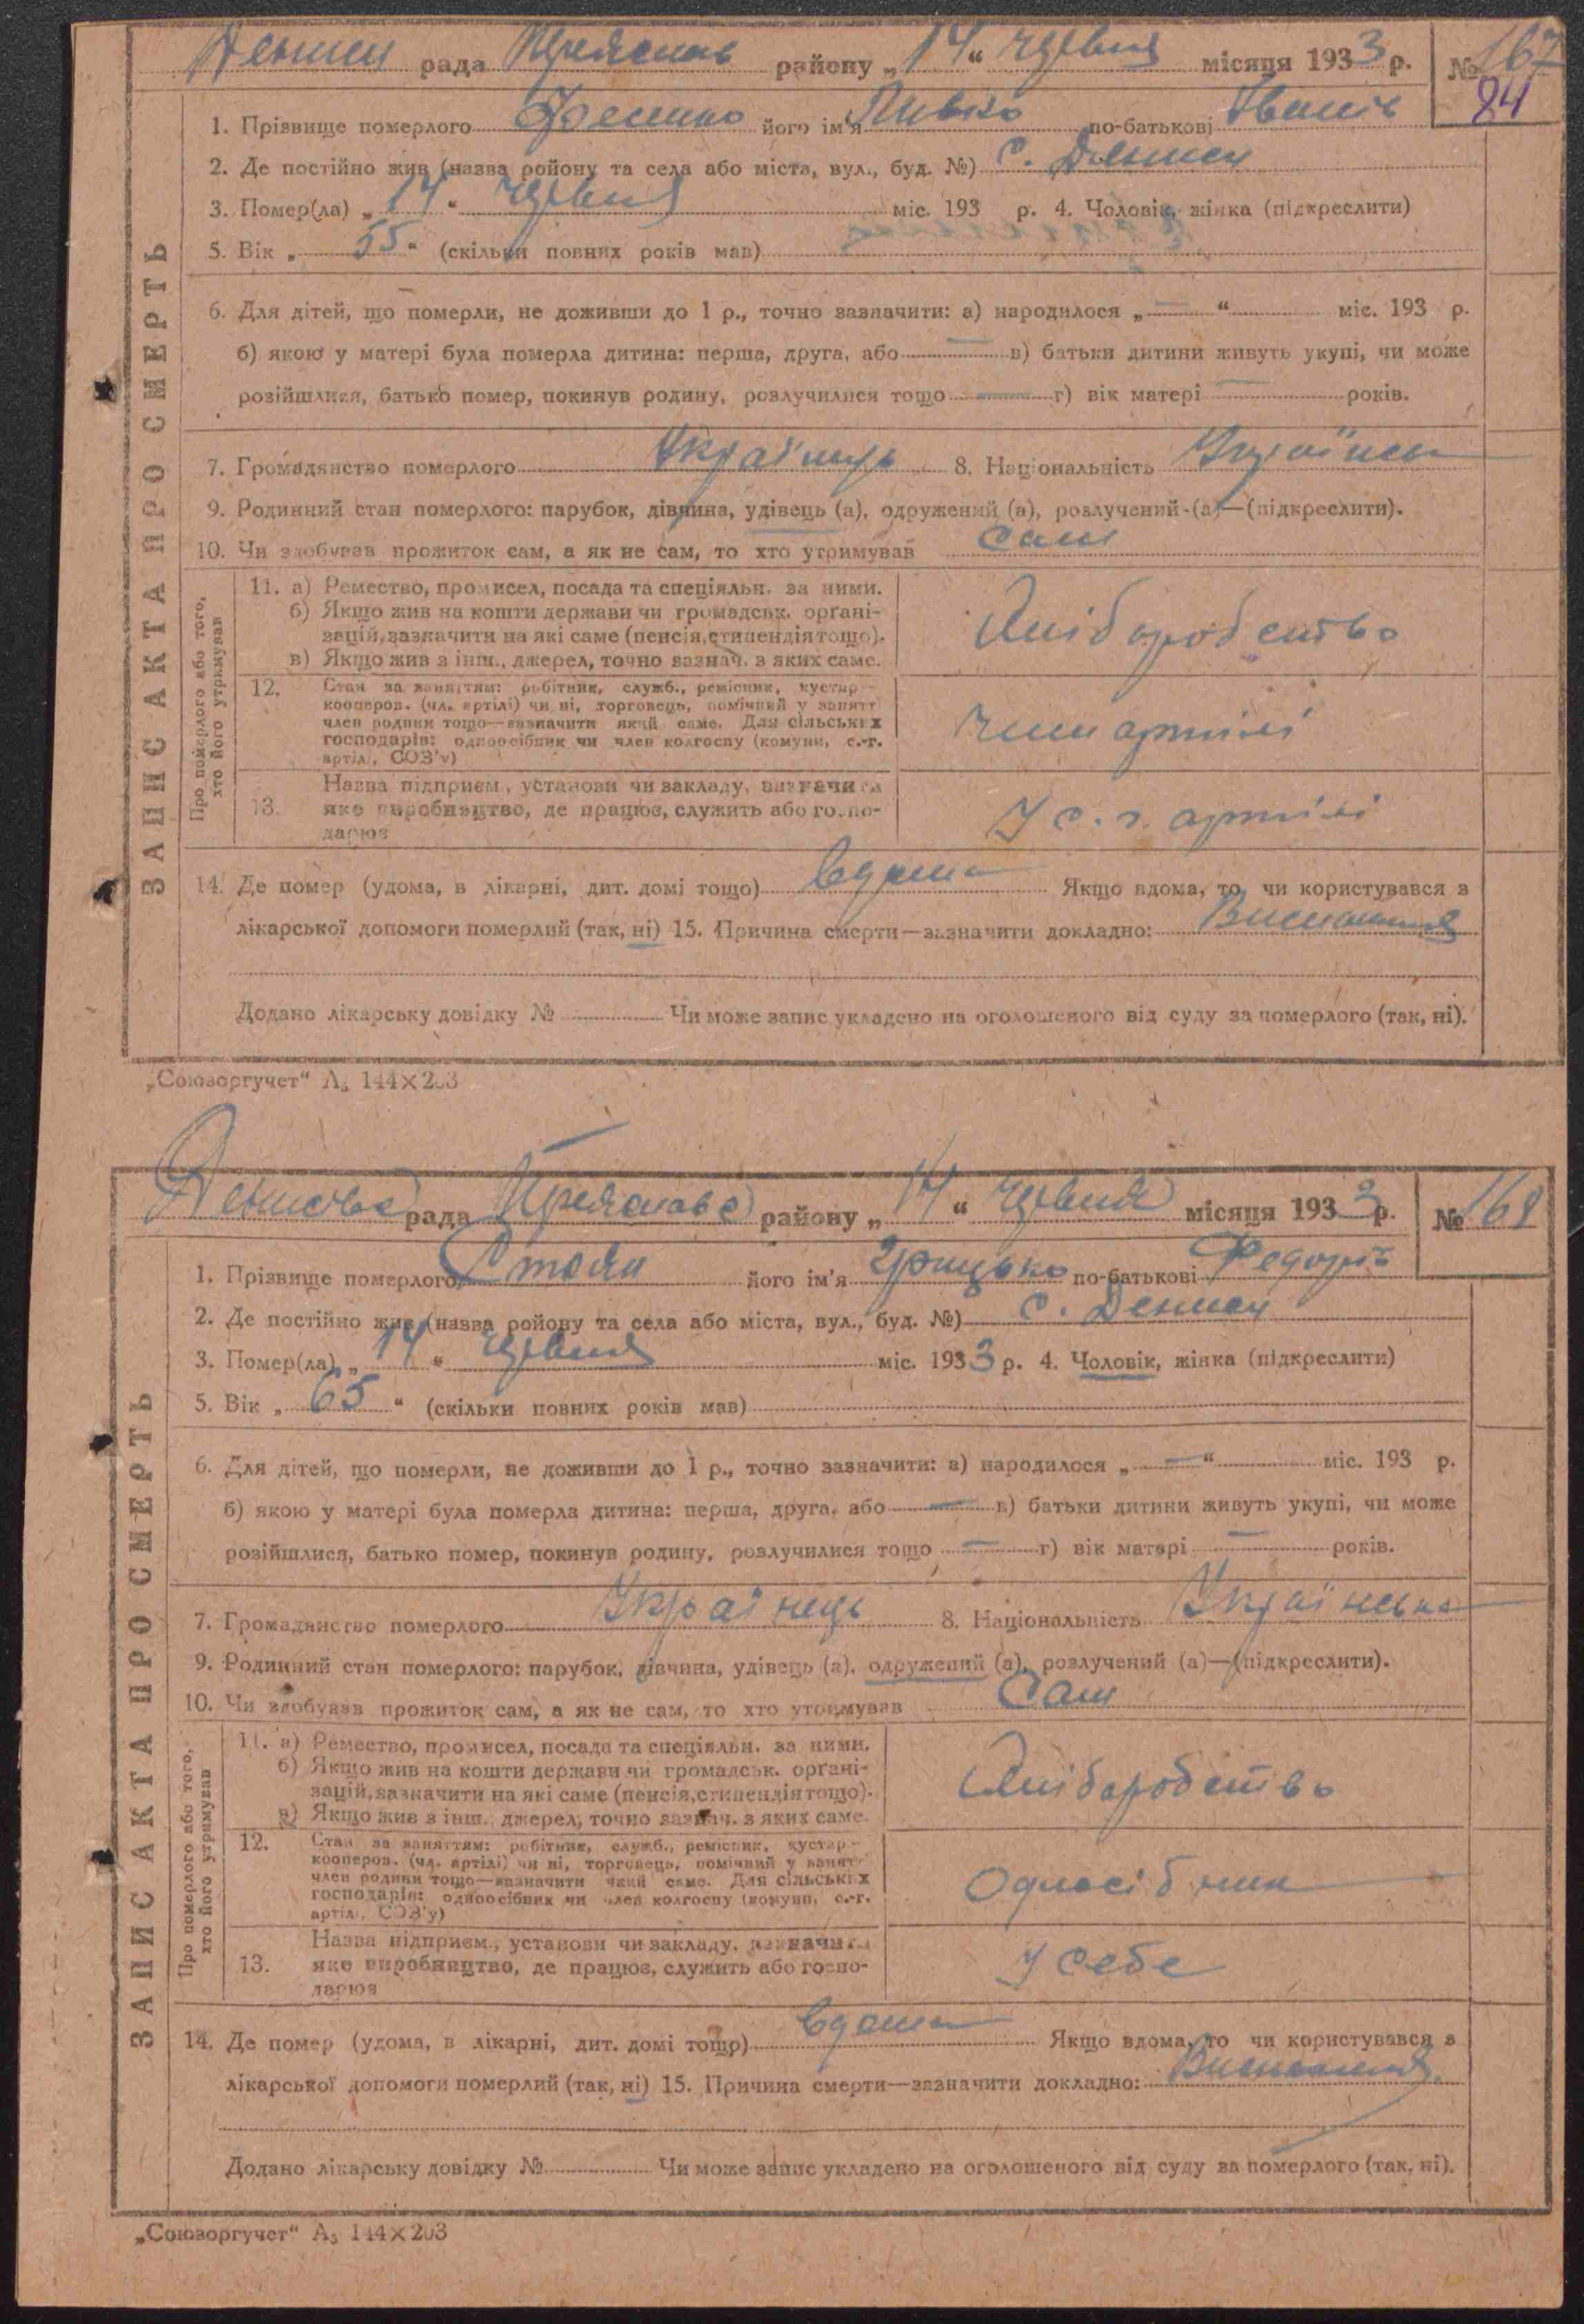 Деньги рада Переяслав району „14“ червня місяця 1933 р. № 167
84
1. Прізвище померлого Фесенко його ім'я Пивко по-батькові Іванів
2. Де постійно жив (назва ройону та села або міста, вул., буд. №) с. Деньги
3. Помер(ла) „14“ червня міс. 193 р. 4. Чоловік, жінка (підкреслити)
5. Вік „55“ (скільки повних років мав)
6. Для дітей, що померли, не доживши до 1 р., точно зазначити: а) народилося „—“ міс. 193 р.
б) якою у матері була померла дитина: перша, друга, або — в) батьки дитини живуть укупі, чи може
розійшлися, батько помер, покинув родину, розлучилися тощо — г) вік матері — років.
7. Громадянство померлого Українець 8. Національність Українськ
9. Родинний стан померлого: парубок, дівчина, удівець (а), одружений (а), розлучений (а)—(підкреслити).
10. Чи здобував прожиток сам, а як не сам, то хто утримував сам
ЗАПИС АКТА ПРО СМЕРТЬ
Про померлого або того, хто його утримував
11. а) Ремество, промисел, посада та спеціяльн. за ними.
б) Якщо жив на кошти держави чи громадськ. орґані-
зацій, зазначити на які саме (пенсія, стипендія тощо).
в) Якщо жив з інш., джерел, точно зазнач. з яких саме.
Хліборобство
12. Стан за заняттям: робітник, служб., ремісник, кустар-
кооперов. (чл. артілі) чи ні, торговець, помічний у занятт
член родини тощо—зазначити який саме. Для сільських
господарів: одноосібник чи член колгоспу (комуни, с.-г.
артілі, СОЗ'у)
Член артілі
13. Назва підприєм., установи чи закладу, визначити
яке виробництво, де працює, служить або госпо-
дарює
У с. г. артілі
14. Де помер (удома, в лікарні, дит. домі тощо) вдома Якщо вдома, то чи користувався з
лікарської допомоги померлий (так, ні) 15. Причина смерти—зазначити докладно: Виснаження
Додано лікарську довідку № Чи може запис укладено на оголошеного від суду за померлого (так, ні).
„Союзоргучет“ А₅ 144×203
Деньгівська рада Переяславс району „14“ червня місяця 1933 р. № 168
1. Прізвище померлого Стоян його ім'я Грицько по-батькові Федорів
2. Де постійно жив (назва ройону та села або міста, вул., буд. №) с. Деньги
3. Помер(ла) „14“ червня міс. 1933 р. 4. Чоловік, жінка (підкреслити)
5. Вік „65“ (скільки повних років мав)
6. Для дітей, що померли, не доживши до 1 р., точно зазначити: а) народилося „—“ міс. 193 р.
б) якою у матері була померла дитина: перша, друга, або — в) батьки дитини живуть укупі, чи може
розійшлися, батько помер, покинув родину, розлучилися тощо — г) вік матері — років.
7. Громадянство померлого Українець 8. Національність Українська
9. Родинний стан померлого: парубок, дівчина, удівець (а), одружений (а), розлучений (а)—(підкреслити).
10. Чи здобував прожиток сам, а як не сам, то хто утримував Сам
ЗАПИС АКТА ПРО СМЕРТЬ
Про померлого або того, хто його утримував
11. а) Ремество, промисел, посада та спеціяльн. за ними.
б) Якщо жив на кошти держави чи громадськ. орґані-
зацій, зазначити на які саме (пенсія, стипендія тощо).
в) Якщо жив з інш. джерел, точно зазнач. з яких саме.
Хліборобство
12. Стан за заняттям: робітник, служб., ремісник, кустар-
кооперов. (чл. артілі) чи ні, торговець, помічний у занятт
член родини тощо—зазначити який саме. Для сільських
господарів: одноосібник чи член колгоспу (комуни, с.-г.
артілі, СОЗ'у)
Одноосібник
13. Назва підприєм., установи чи закладу, визначити
яке виробництво, де працює, служить або госпо-
дарює
У себе
14. Де помер (удома, в лікарні, дит. домі тощо) вдома Якщо вдома, то чи користувався з
лікарської допомоги померлий (так, ні) 15. Причина смерти—зазначити докладно: Виснаження
Додано лікарську довідку № Чи може запис укладено на оголошеного від суду за померлого (так, ні).
„Союзоргучет“ А₅ 144×203